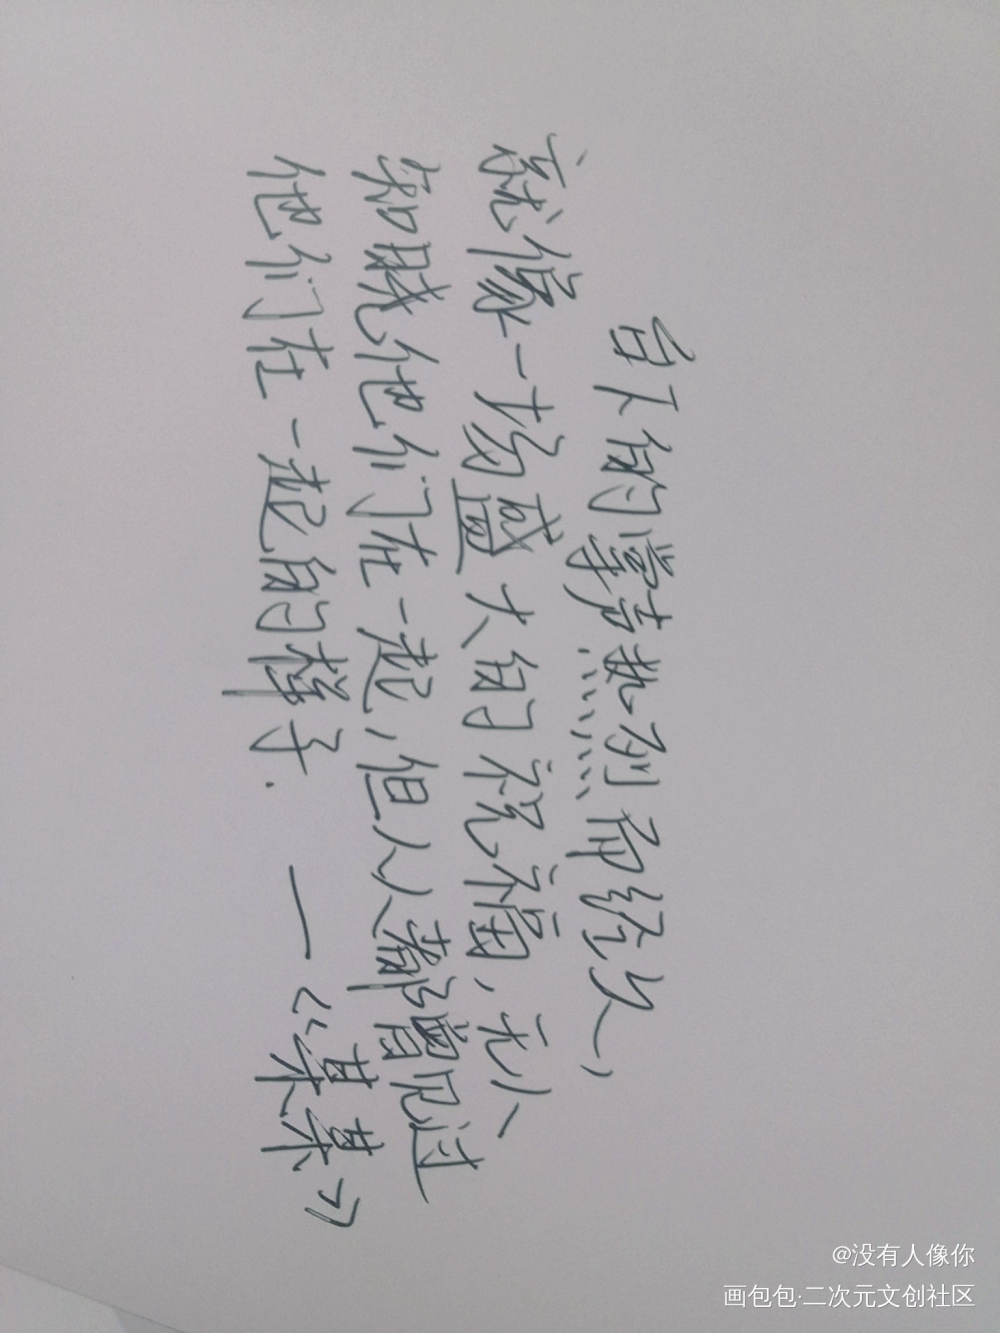 台下的掌声热烈而经久，
就像一场盛大的祝福，无人
知晓他们在一起，但人人都曾见过
他们在一起的样子. —《某某》
@没有人像你
画包包·二次元文创社区